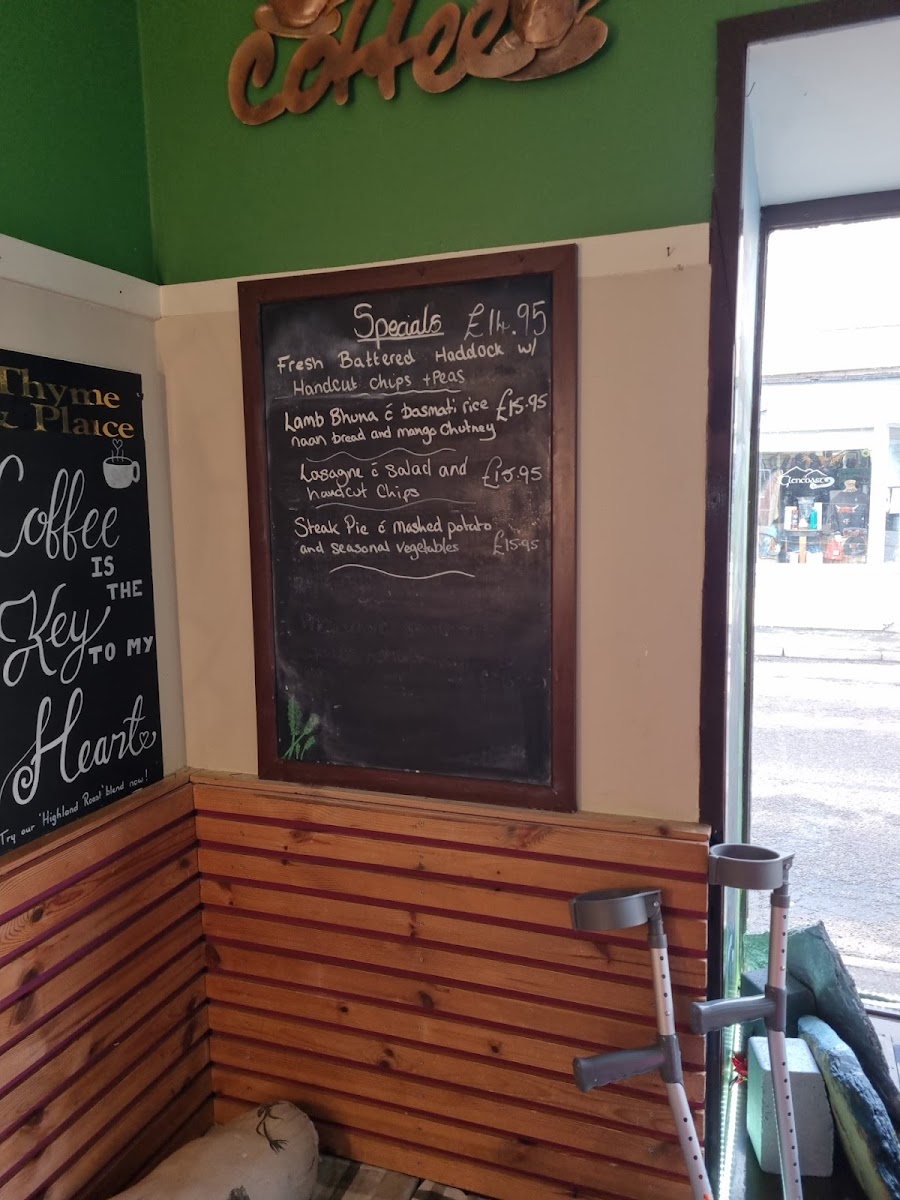 Coffee
Specials £14.95
Fresh Battered Haddock w/
Handcut chips + Peas
Lamb Bhuna c̄ basmati rice £15.95
naan bread and mango chutney
Lasagne c̄ salad and £15.95
handcut chips
Steak Pie c̄ mashed potato
and seasonal vegetables £15.95
Thyme
& Plaice
Coffee
IS
THE
Key
TO MY
Heart
Try our 'Highland Roast' blend now!